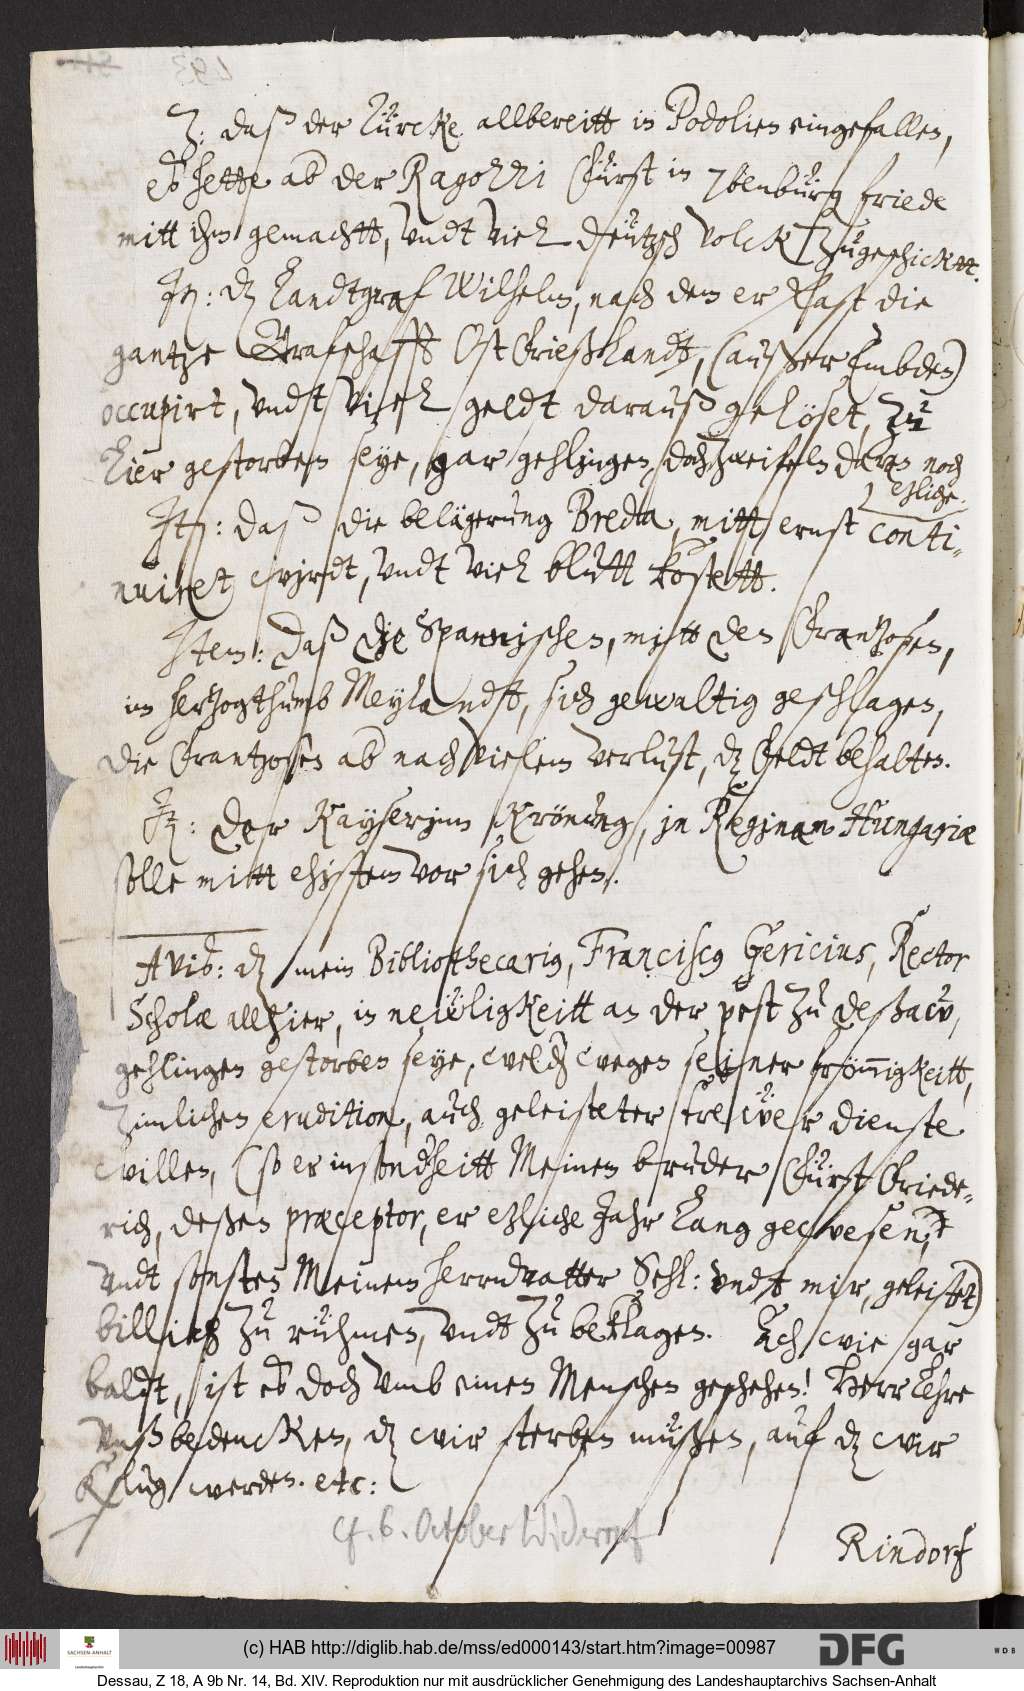 J: daß der Türcke allbereitt in Podolien eingefallen,
es hette ab der Ragozzi Fürst in 7benbürg friede
mitt ihm gemachtt, vndt viel deützsch volck zugeschicktt.
It: dz Landtgraf Wilhelm, nach dem er fast die
gantze Grafschafft OstFrießlandt, (außer Embden)
occupirt, vndt viel geldt darauß gelöset, zu
Lier gestorben seye, gar gehlingen, doch zweifeln daran noch
etzliche.
It: daß die belägerung Breda, mitt ernst conti-
nuiret wirdt, vndt viel blutt kostett.
Item: daß die Spannischen, mitt den Frantzosen,
im hertzogthumb Meylandt, sich gewaltig geschlagen,
die Frantzosen ab nach vielem verlust, dz Feldt behalten.
It: der Kayserinn Krönung, in Reginam Hungariæ
solle mitt ehistem vor sich gehen.
Avis: dz mein Bibliothecarius, Franciscus Gericius, Rector
Scholæ allhier, in neẅligkeitt an der pest zu Deßaw,
gehlingen gestorben seye, welchen wegen seiner frömmigkeitt,
zimlichen erudition, auch geleisteter treẅer dienste
willen, (so er insonderheitt Meinem bruder Fürst Friede-
rich, deßen præceptor, er etzliche Jahr lang gewesen,
vndt sonsten Meinem herrnvatter Sehl: vndt mir, geleistet)
billich zu rühmen, vndt zu beklagen. Ach wie gar
baldt, ist es doch vmb einen Menschen geschehen! Herr Lehre
vnß bedencken, dz wir sterben müßen, auf dz wir
klug werden. etc:
cf. 6. October Widerruf
Rindorf
(c) HAB http://diglib.hab.de/mss/ed000143/start.htm?image=00987
SACHSEN-ANHALT
Landeshauptarchiv
DFG
WDB
Dessau, Z 18, A 9b Nr. 14, Bd. XIV. Reproduktion nur mit ausdrücklicher Genehmigung des Landeshauptarchivs Sachsen-Anhalt